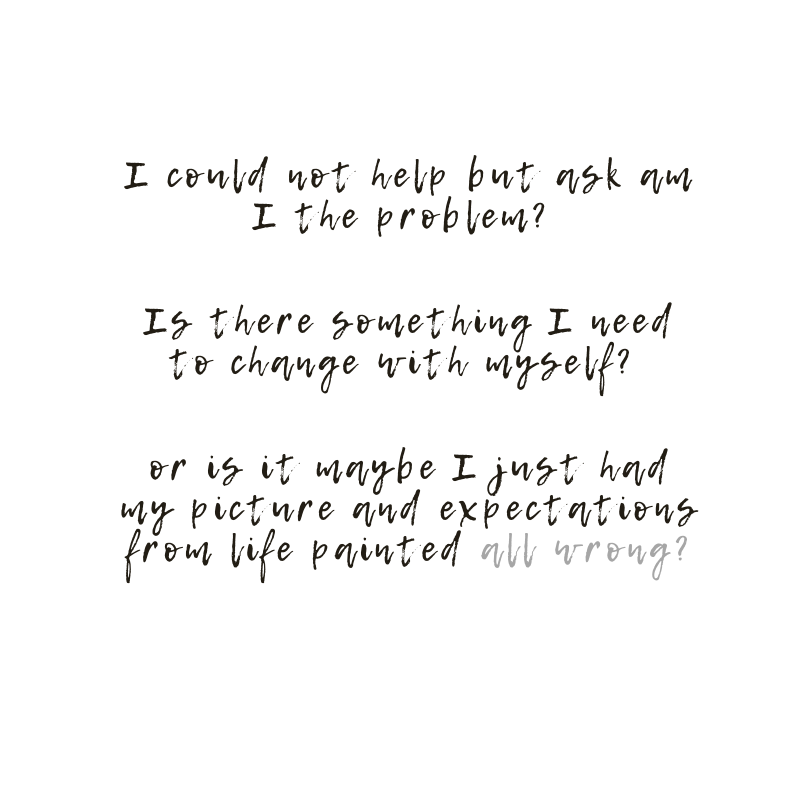 I could not help but ask am
I the problem?
Is there something I need
to change with myself?
or is it maybe I just had
my picture and expectations
from life painted all wrong?